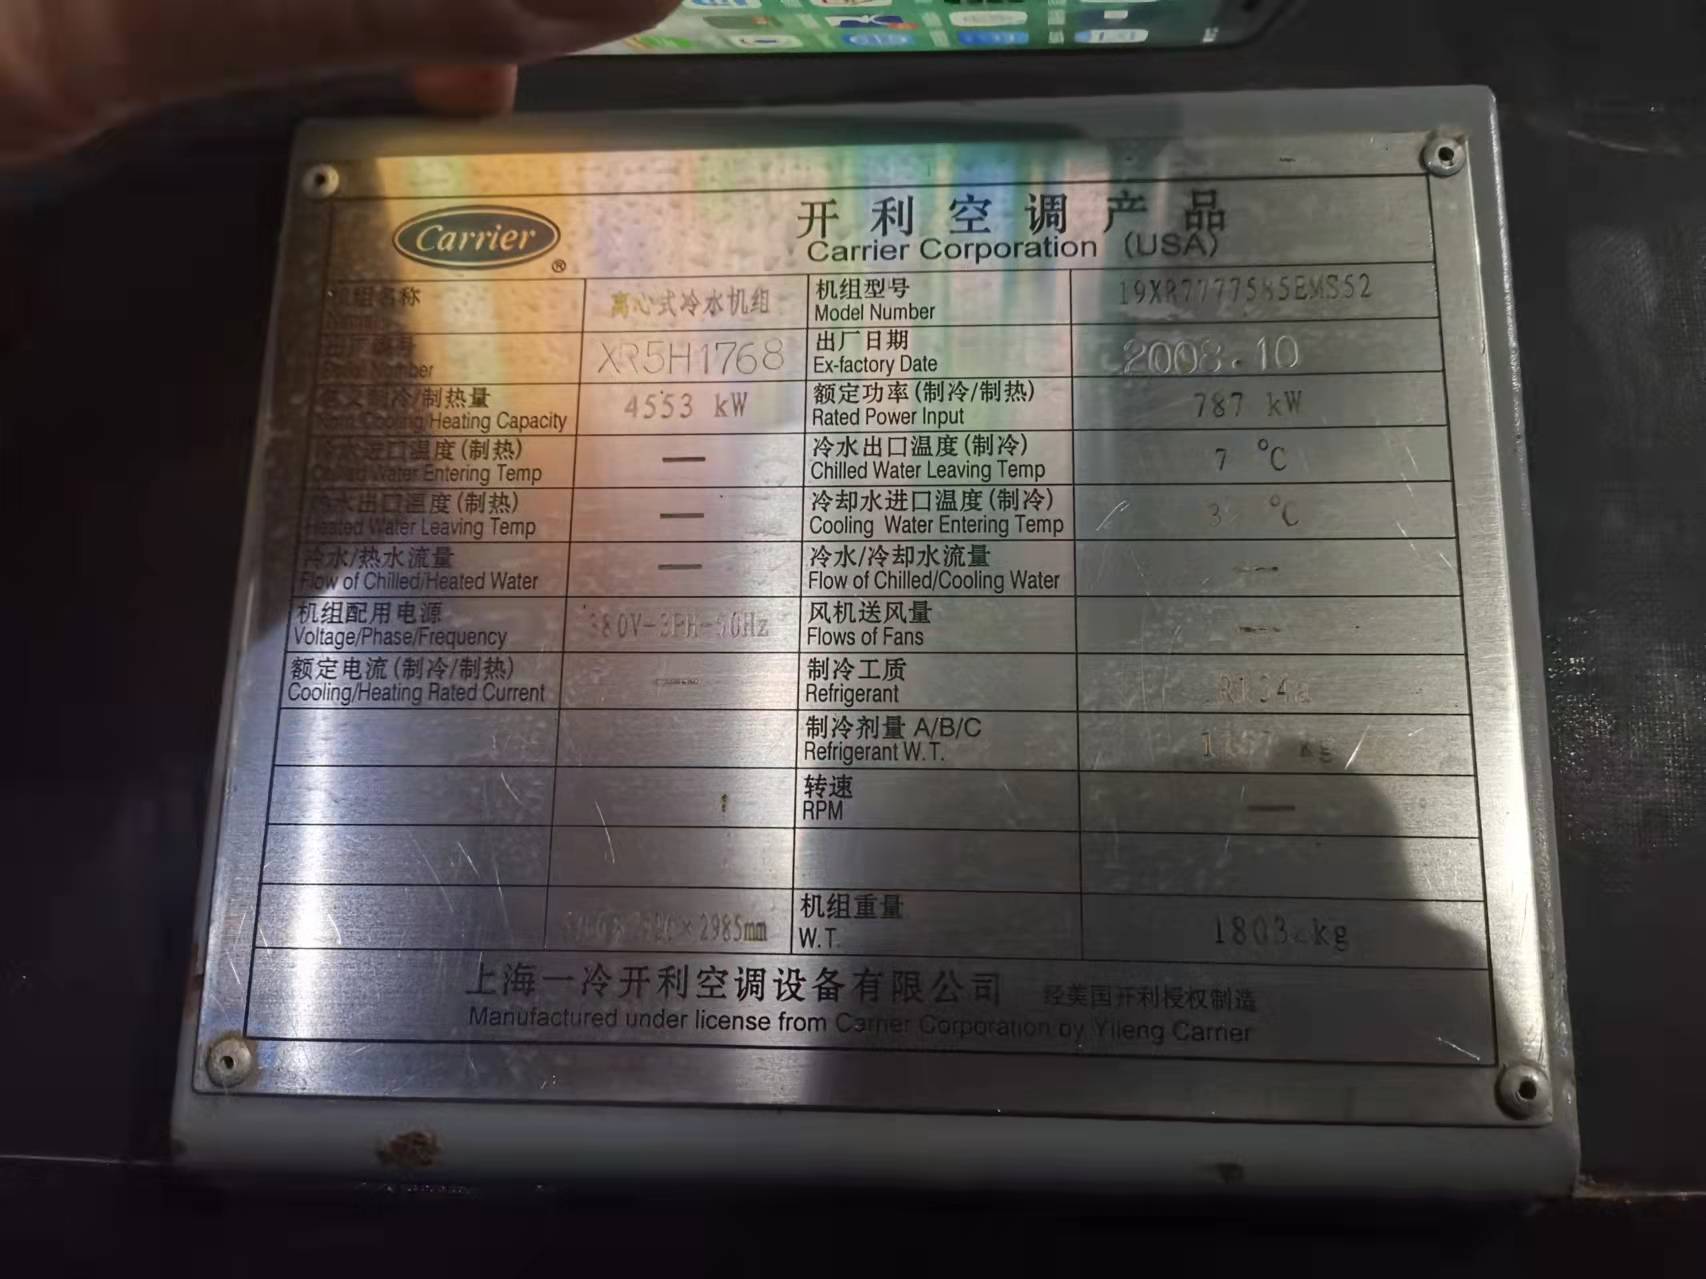 Carrier
®
开利空调产品
Carrier Corporation (USA)
机组名称
离心式冷水机组
机组型号
Model Number
出厂编号
Number
XR5H1768
出厂日期
Ex-factory Date
2008.10
名义制冷/制热量
Nom Cooling/Heating Capacity
4553 kW
额定功率(制冷/制热)
Rated Power Input
787 kW
冷水进口温度(制热)
Chilled Water Entering Temp
—
冷水出口温度(制冷)
Chilled Water Leaving Temp
7 °C
热水出口温度(制热)
Heated Water Leaving Temp
—
冷却水进口温度(制冷)
Cooling Water Entering Temp
°C
冷水/热水流量
Flow of Chilled/Heated Water
—
冷水/冷却水流量
Flow of Chilled/Cooling Water
—
机组配用电源
Voltage/Phase/Frequency
380V-3PH-50Hz
风机送风量
Flows of Fans
—
额定电流(制冷/制热)
Cooling/Heating Rated Current
—
制冷工质
Refrigerant
R134a
制冷剂量 A/B/C
Refrigerant W.T.
kg
转速
RPM
—
2985mm
机组重量
W.T.
kg
上海一冷开利空调设备有限公司 经美国开利授权制造
Manufactured under license from Carrier Corporation by Yileng Carrier